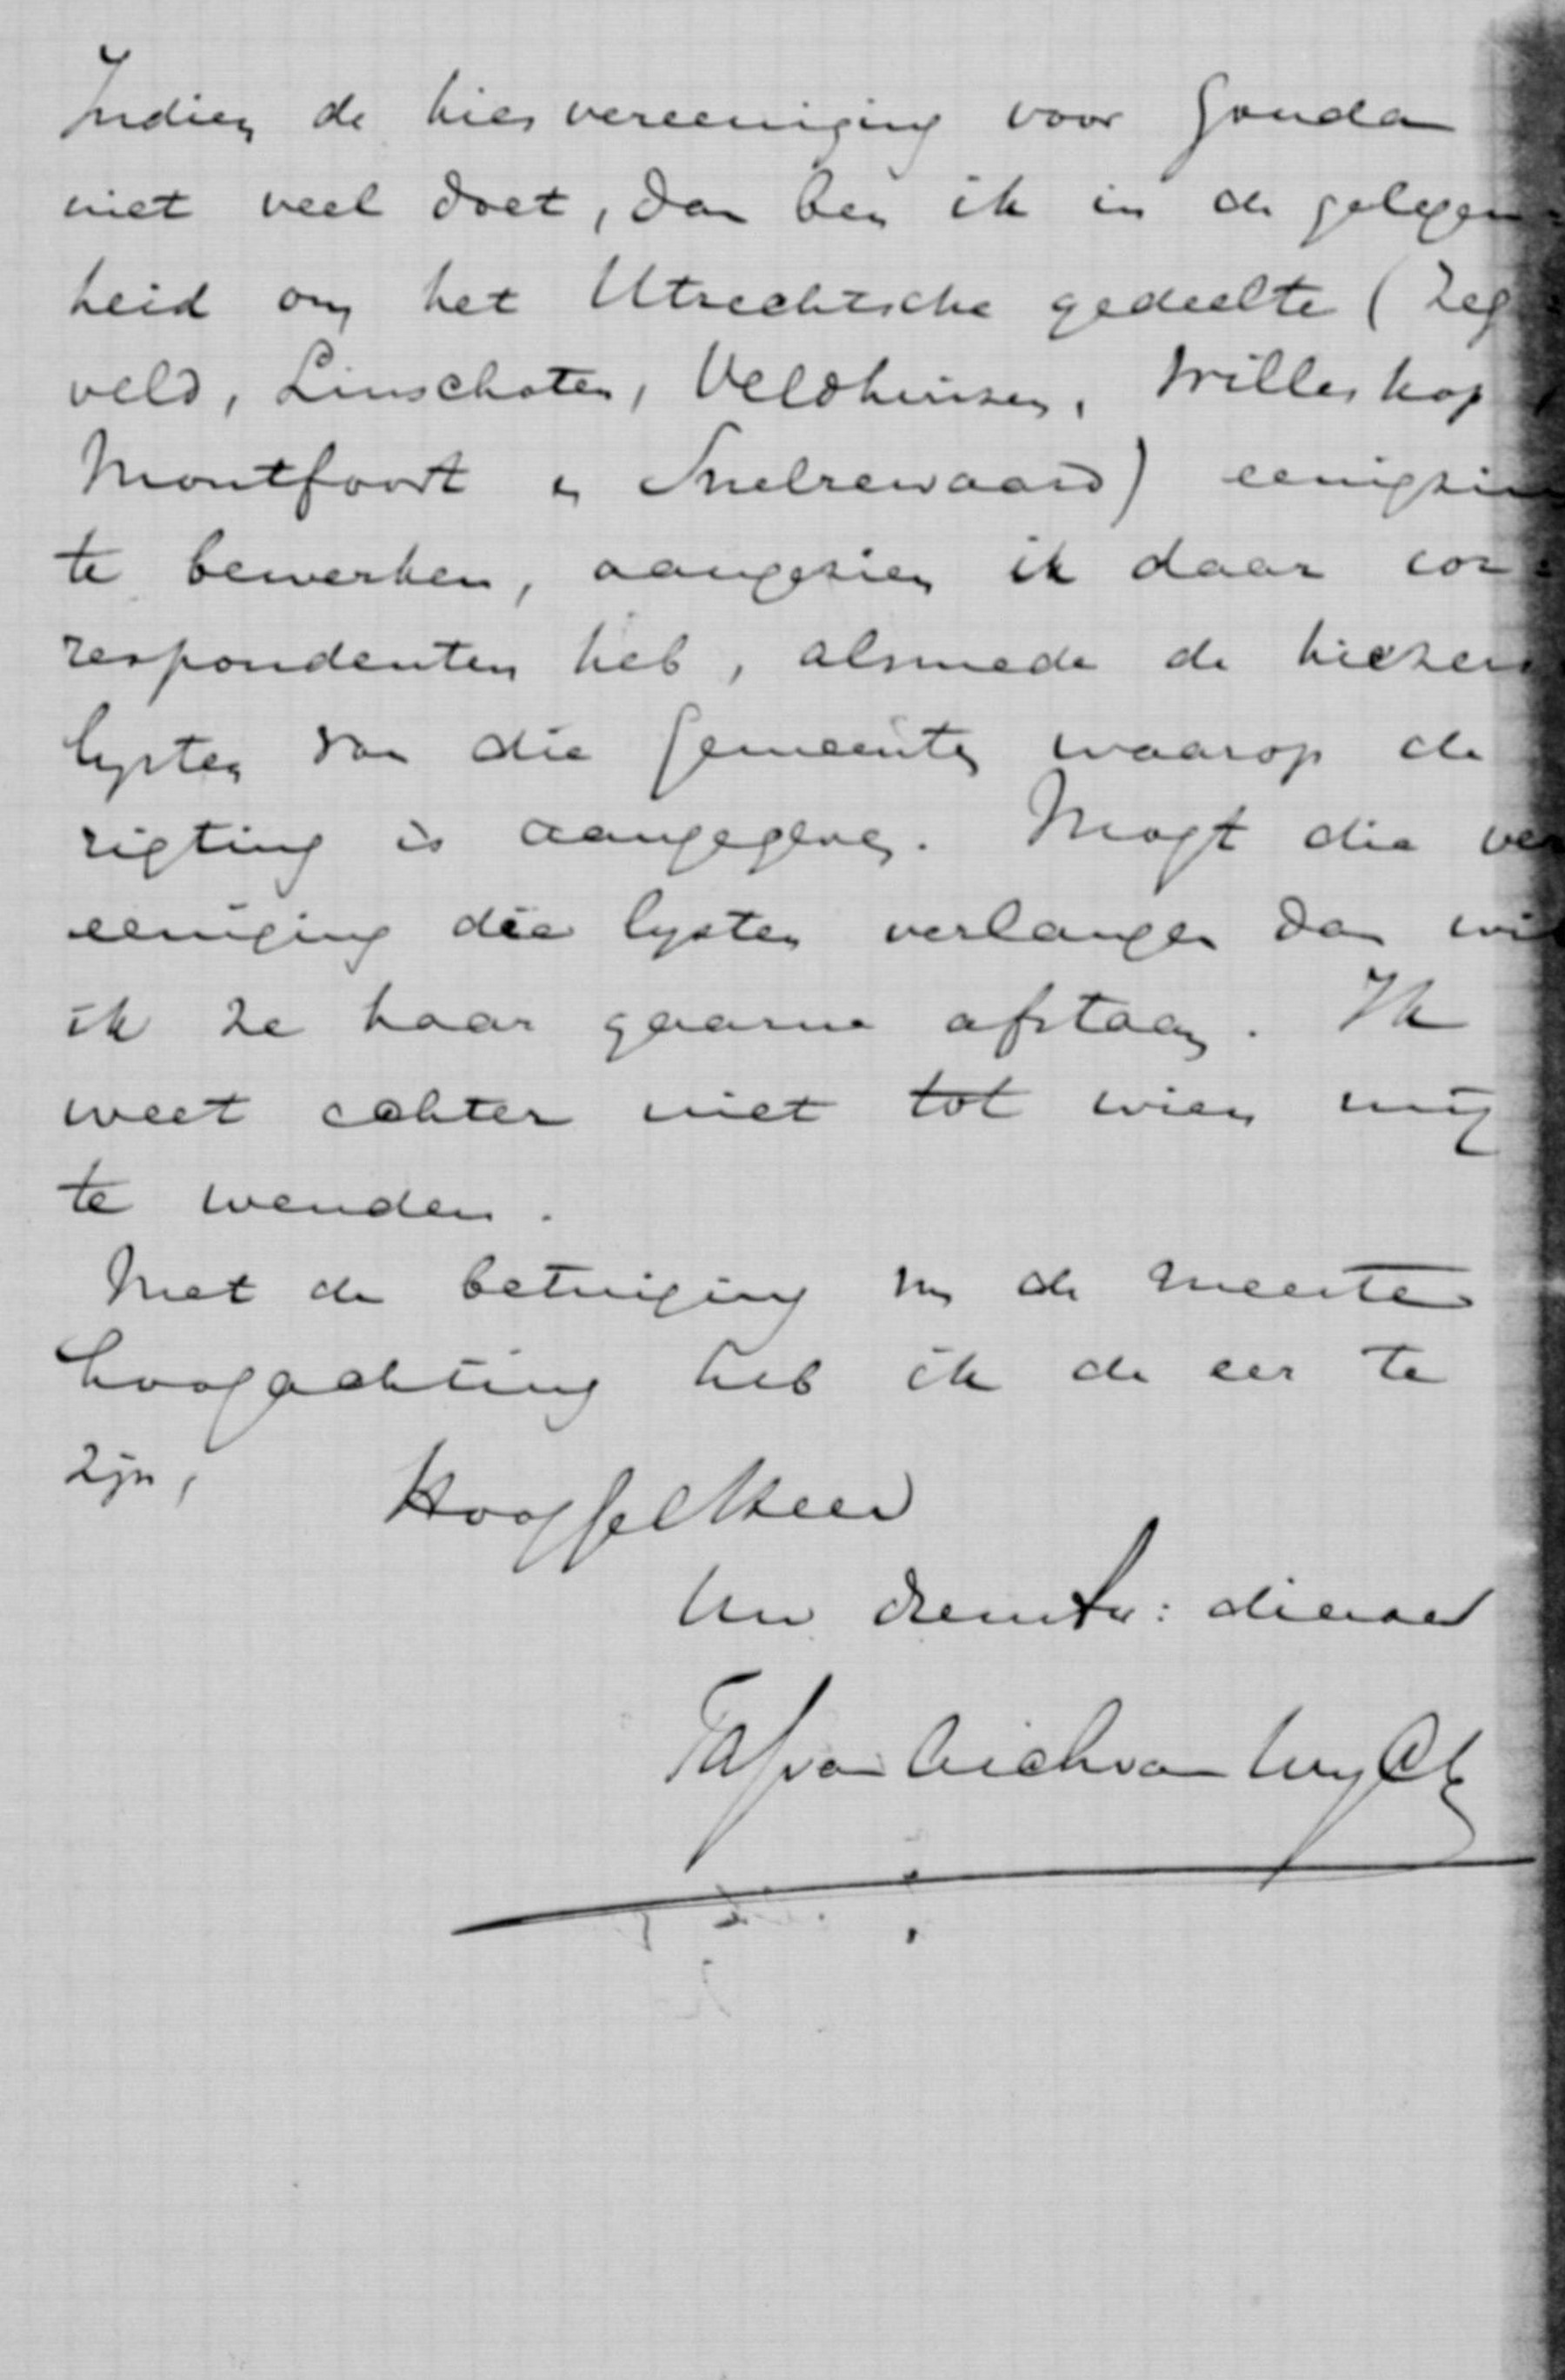 Indien de kiesvereeniging voor Gouda
niet veel doet, dan ben ik in de gelegen=
heid om het Utrechtsche gedeelte (Zeg=
veld, Linschoten, Veldhuizen, Willeskop,
Montfoort en Snelrewaard) eenigzin
te bewerken, aangezien ik daar cor=
respondenten heb, alsmede de kiezers
lysten van die gemeenten waarop de
rigting is aangegeven. Mogt die ver
eeniging die lysten verlangen dan wil
ik ze haar gaarne afstaan. Ik
weet echter niet tot wien mij
te wenden.
Met de betuiging van de meeste
hoogachting heb ik de eer te
zijn,
Hooggel Heer
Uw dienstw: dienaar
van van